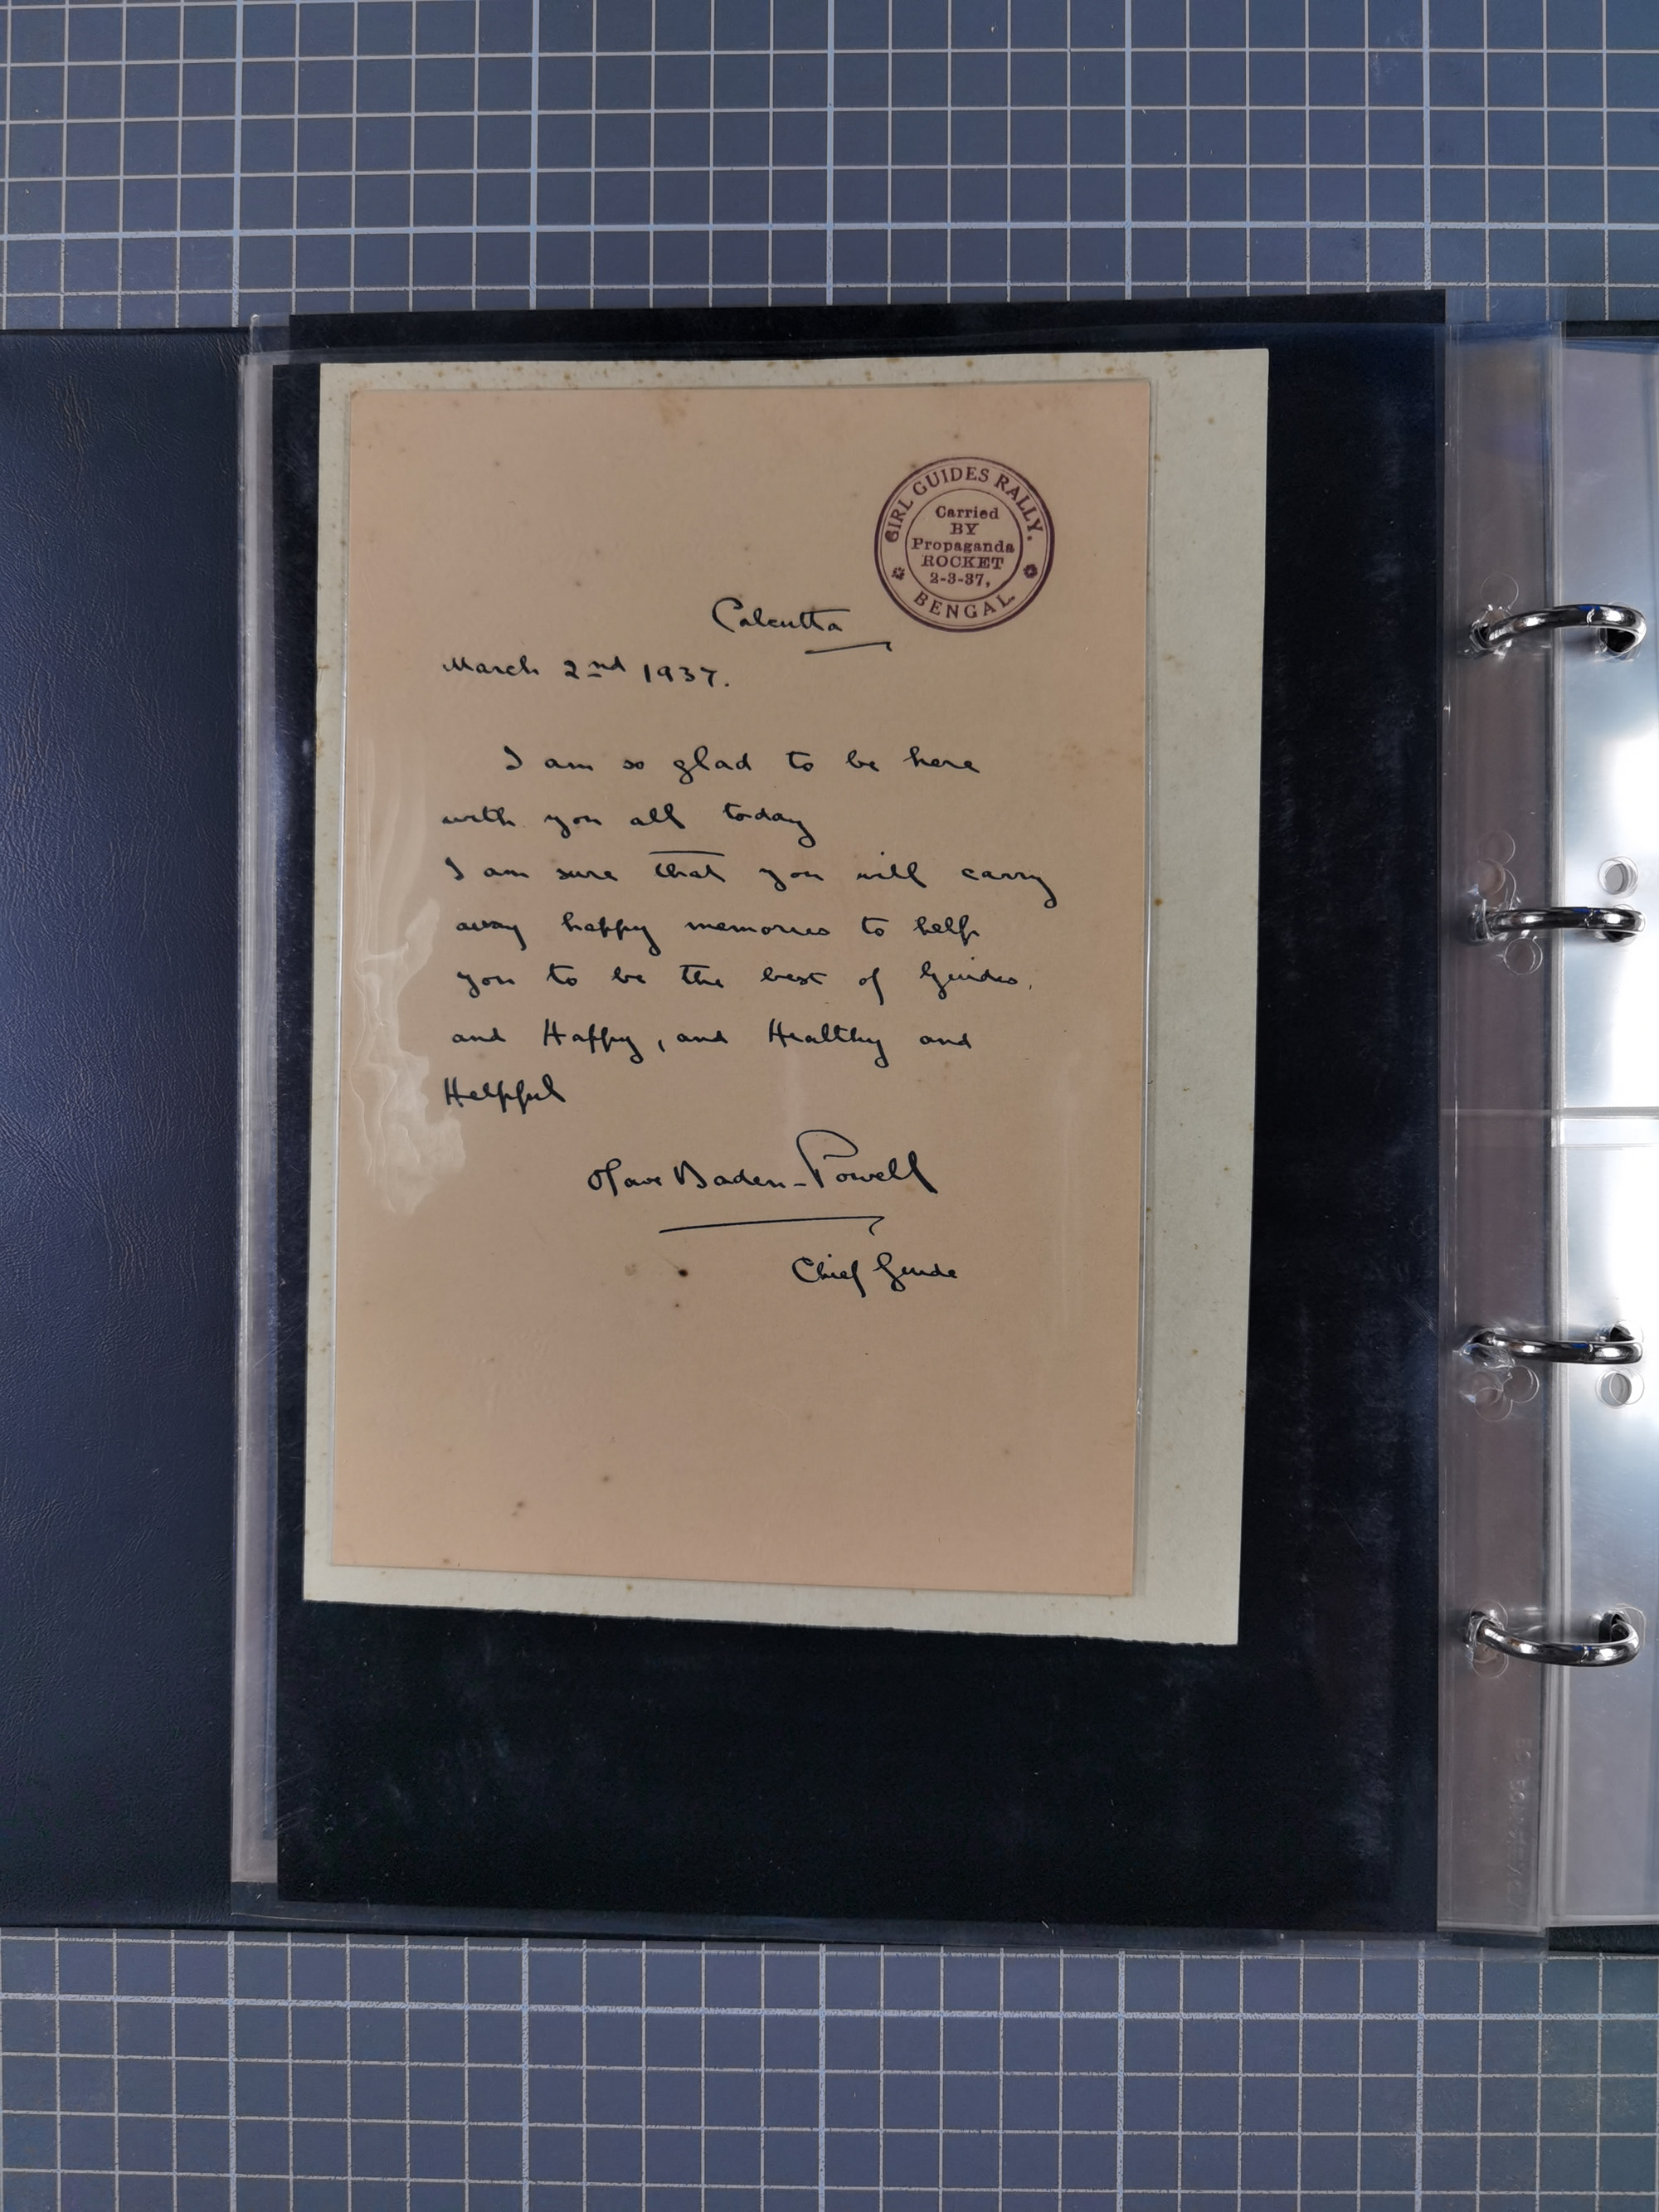 GIRL GUIDES RALLY.
Carried
BY
Propaganda
ROCKET
2-3-37,
BENGAL
Calcutta
March 2nd 1937.
I am so glad to be here
with you all today
I am sure that you will carry
away happy memories to help
you to be the best of Guides,
and Happy, and Healthy and
Helpful
Olave Baden-Powell
Chief Guide